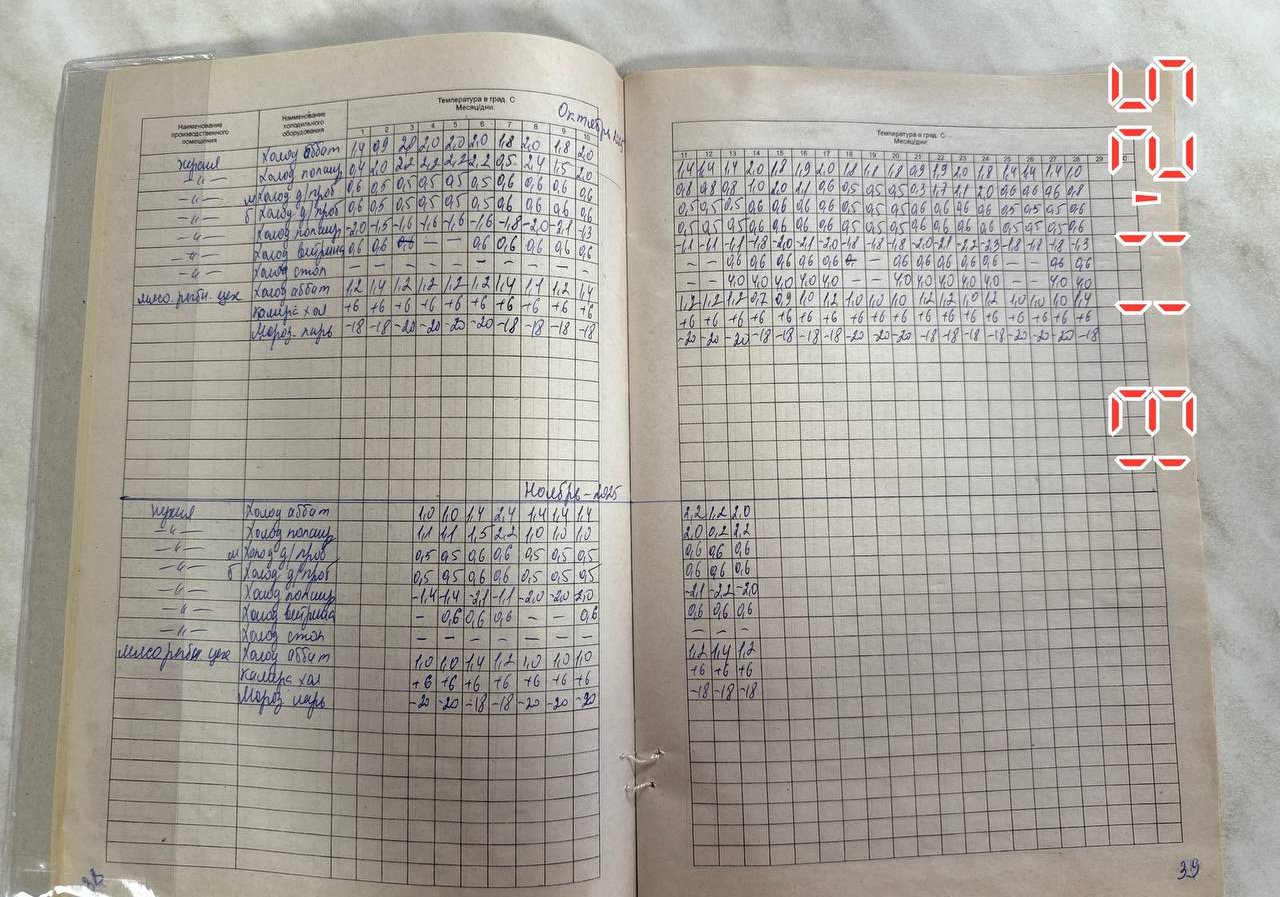 Температура в град. С
Месяц/дни.
Октябрь
Наименование производственного помещения
Наименование холодильного оборудования
1 2 3 4 5 6 7 8 9 10
кухня Холод аббат 1,4 0,9 2,0 2,0 2,0 2,0 1,8 2,0 1,8 2,0
—"— Холод 0,4 2,0 2,2 2,2 2,2 2,2 0,5 2,4 1,5 2,0
—"— м Холод д/проб 0,6 0,5 0,5 0,5 0,5 0,5 0,6 0,6 0,6 0,6
—"— б Холод д/проб 0,6 0,5 0,5 0,5 0,5 0,5 0,6 0,6 0,6 0,6
—"— Холод -2,0 -1,5 -1,6 -1,6 -1,6 -1,6 -1,8 -2,0 -2,1 -1,3
—"— Холод витрина 0,6 0,6 — — 0,6 0,6 0,6 0,6 0,6
—"— Холод стол — — — — — — — — — —
мясо рыбн. цех Холод аббат 1,2 1,4 1,2 1,2 1,2 1,2 1,4 1,1 1,2 1,4
Камера хол +6 +6 +6 +6 +6 +6 +6 +6 +6 +6
Мороз ларь -18 -18 -20 -20 -20 -20 -18 -18 -18 -18
Ноябрь – 2025
кухня Холод аббат 1,0 1,0 1,4 2,4 1,4 1,4 1,4
—"— Холод 1,1 1,1 1,5 2,2 1,0 1,0 1,0
—"— м Холод д/проб 0,5 0,5 0,6 0,6 0,5 0,5 0,5
—"— б Холод д/проб 0,5 0,5 0,6 0,6 0,5 0,5 0,5
—"— Холод -1,4 -1,4 -2,1 -1,1 -2,0 -2,0 -2,0
—"— Холод витрина — 0,6 0,6 0,6 — — 0,6
—"— Холод стол — — — — — — —
мясо рыбн цех Холод аббат 1,0 1,0 1,4 1,2 1,0 1,0 1,0
Камера хол +6 +6 +6 +6 +6 +6 +6
Мороз ларь -20 -20 -18 -18 -20 -20 -20
Температура в град. С
Месяц/дни:
11 12 13 14 15 16 17 18 19 20 21 22 23 24 25 26 27 28 29
1,4 1,4 1,4 2,0 1,8 1,9 2,0 1,8 1,8 1,8 0,9 1,9 2,0 1,8 1,4 1,4 1,4 1,0
0,8 0,8 0,8 1,0 2,0 2,1 0,6 0,5 0,5 0,5 0,3 1,7 2,1 2,0 0,6 0,6 0,6 0,8
0,5 0,5 0,5 0,6 0,6 0,6 0,6 0,5 0,5 0,5 0,6 0,6 0,6 0,6 0,5 0,5 0,5 0,6
0,5 0,5 0,5 0,6 0,6 0,6 0,6 0,5 0,5 0,5 0,6 0,6 0,6 0,6 0,5 0,5 0,5 0,6
-1,1 -1,1 -1,1 -1,8 -2,0 -2,1 -2,0 -1,8 -1,8 -1,8 -2,0 -2,1 -2,2 -2,3 -1,8 -1,8 -1,8 -1,3
— — 0,6 0,6 0,6 0,6 0,6 — 0,6 0,6 0,6 0,6 0,6 — — 0,6 0,6
— — 4,0 4,0 4,0 4,0 4,0 — — 4,0 4,0 4,0 4,0 4,0 — — 4,0 4,0
1,2 1,2 1,2 0,7 0,9 1,0 1,2 1,0 1,0 1,0 1,2 1,2 1,0 1,2 1,0 1,0 1,0 1,4
+6 +6 +6 +6 +6 +6 +6 +6 +6 +6 +6 +6 +6 +6 +6 +6 +6 +6
-20 -20 -20 -18 -18 -18 -18 -20 -20 -20 -18 -18 -18 -18 -20 -20 -20 -18
2,2 1,2 2,0
2,0 0,2 2,2
0,6 0,6 0,6
0,6 0,6 0,6
-2,1 -2,2 -2,0
0,6 0,6 0,6
— — —
1,2 1,4 1,2
+6 +6 +6
-18 -18 -18
38
39